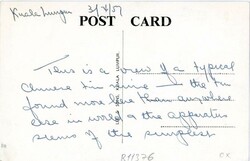 Kuala Lumpur 3/8/51
POST CARD
This is a view of a typical
Chinese tin mine — the tin
found more here than anywhere
else in world & the apparatus
seems of the simplest
R11376 CX